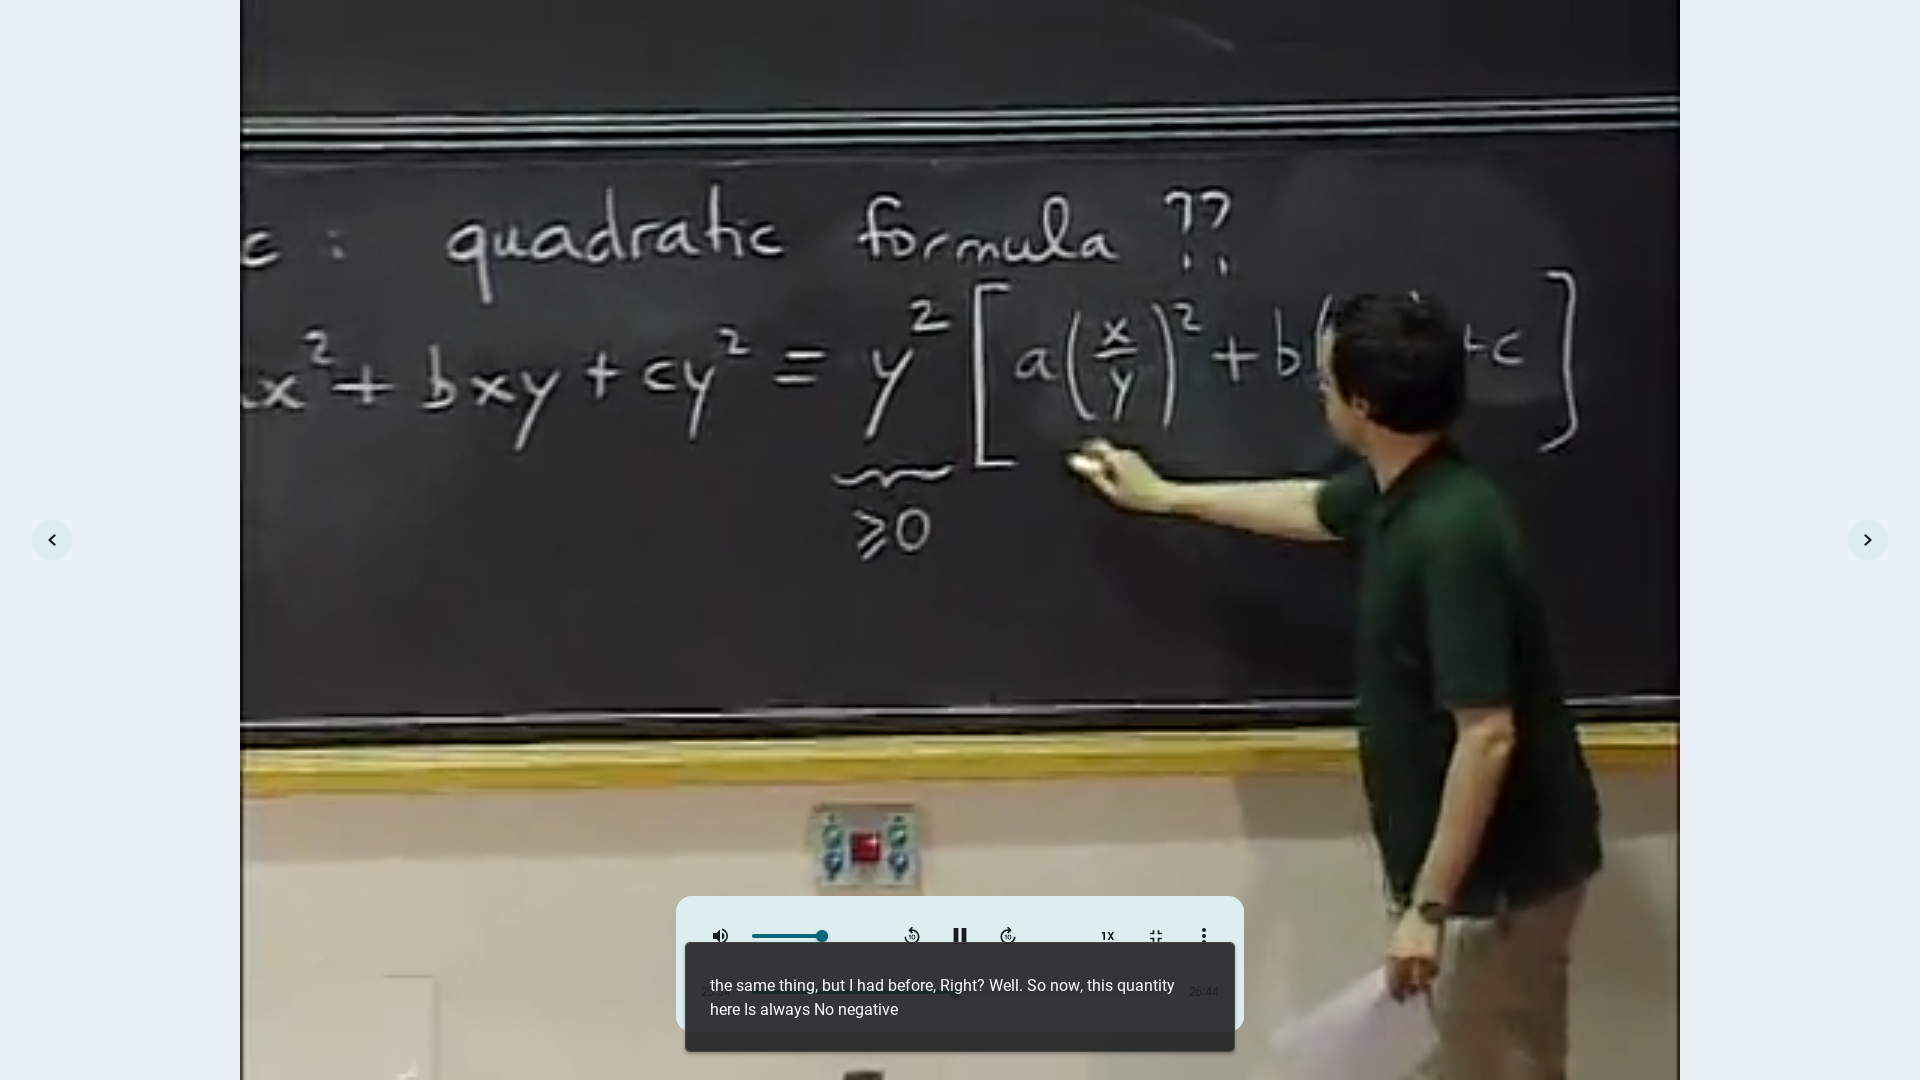 c : quadratic formula ??
x² + bxy + cy² = y² [a(x/y)² + b( +c]
≥0
10
10
1X
the same thing, but I had before, Right? Well. So now, this quantity
here Is always No negative
26:44